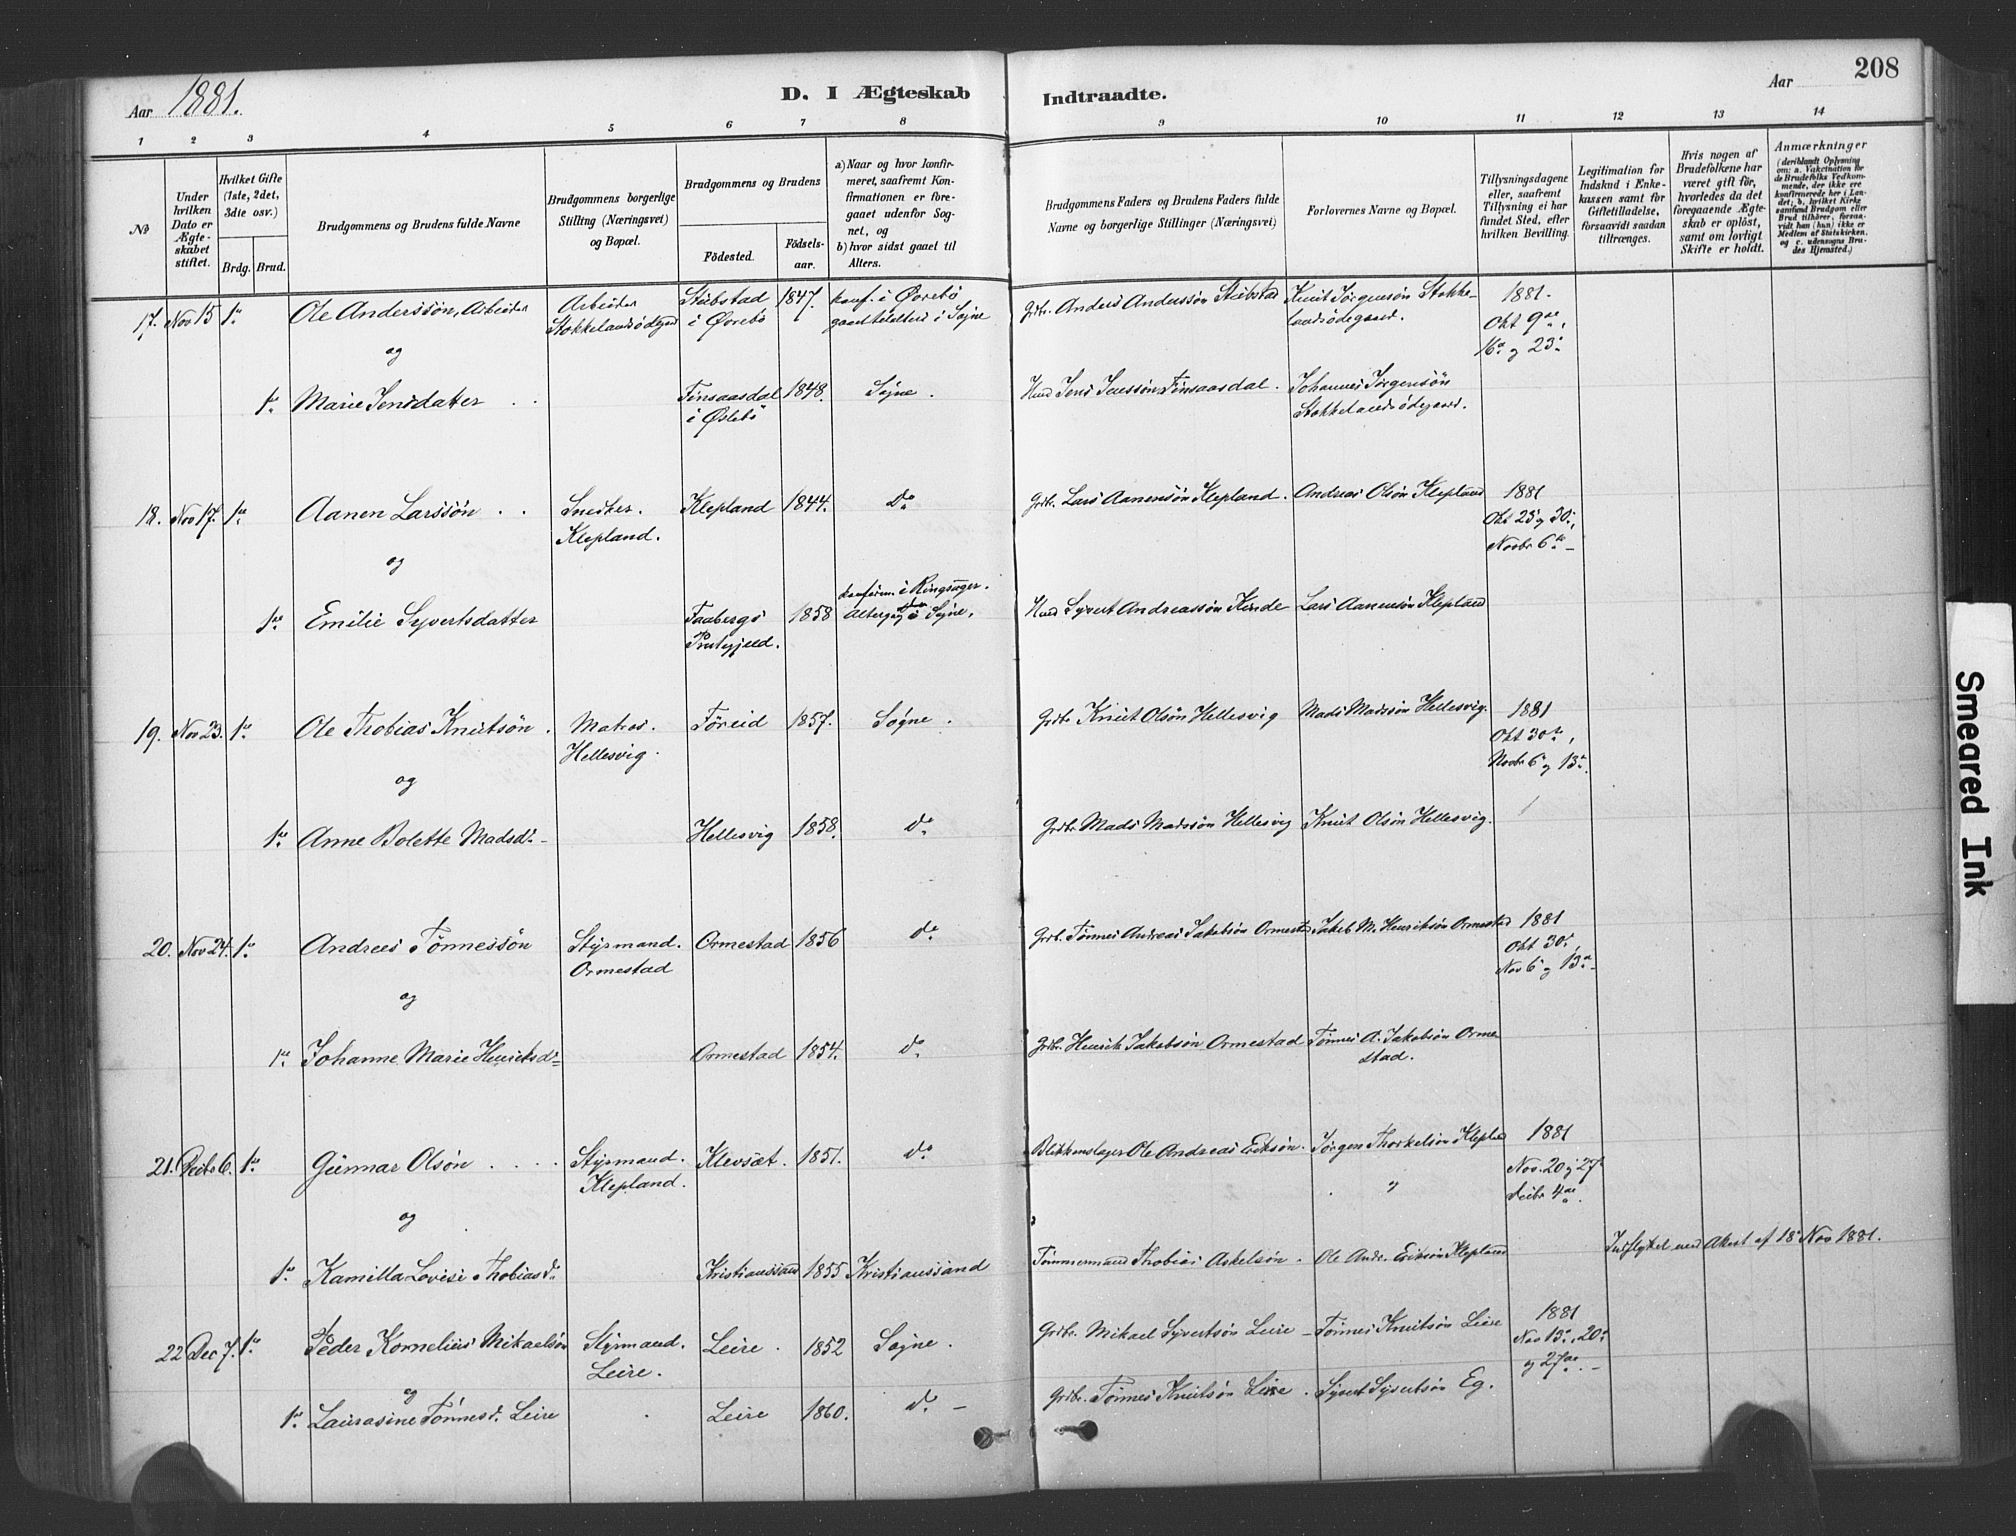 Aar 1881.
D. I Ægteskab Indtraadte.
Aar
208
1 2 3 4 5 6 7 8 9 10 11 12 13 14
No
Under hvilken Dato er Ægteskabet stiftet.
Hvilket Gifte (1ste, 2det, 3die osv.)
Brdg. Brud.
Brudgommens og Brudens fulde Navne
Brudgommens borgerlige Stilling (Næringsvei) og Bopæl.
Brudgommens og Brudens
Födested.
Födselsaar.
a) Naar og hvor konfirmeret, saafremt Konfirmationen er foregaaet udenfor Sognet, og
b) hvor sidst gaaet til Alters.
Brudgommens Faders og Brudens Faders fulde Navne og borgerlige Stillinger (Næringsvei)
Forlovernes Navne og Bopæl.
Tillysningsdagene eller, saafremt Tillysning ei har fundet Sted, efter hvilken Bevilling.
Legitimation for Indskud i Enkekassen samt for Giftetilladelse, forsaavidt saadan tiltrænges.
Hvis nogen af Brudefolkene har været gift för, hvorledes da det foregaaende Ægteskab er oplöst, samt om lovligt Skifte er holdt.
Anmærkninger (deriblandt Oplysning om: a. Vakcination for de Brudefolks Vedkommende, der ikke ere konfirmerede her i Landet; b. hvilket Kirkesamfund Brudgom eller Brud tilhörer, forsaavidt han (hun) ikke er Medlem af Statskirken, og c. udensogns Brudes Hjemsted.)
17. Nov 15 1ste Ole Anderssön, Arbeider Arbeider Stokkelandsödegaard Stubstad i Øvrebö 1847. konf. i Øvrebö gaaet til alters i Sogne Grdbr. Anders Anderssön Stubstad Knut Jörgensön Stokkelandsödegaard. 1881. Okt 9de, 16de og 23de
og
1ste Marie Jensdatter Finsaasdal i Øslebö 1848. Sogne. Husmd Jens Jenssön Finsaasdal. Johannes Jörgensön Stokkelandsödegaard.
18. Nov 17. 1ste Aanen Larssön Snedker. Klepland. Klepland 1844. Do Grdbr. Lars Aanensön Klepland. Andreas Olsön Klepland 1881 Okt 23 og 30, Novbr 6te
og
1ste Emilie Syvertsdatter Faabergs Prstegjeld. 1858 konfirm. i Ringsager. Altergang i Sogne. Husmd Syvert Andreassön Lars Aanensön Klepland
19. Nov 23. 1ste Ole Thobias Knutsön. Matros. Hellesvig. Föreid 1857. Sogne. Grdbr Knut Olsön Hellesvig Mads Madssön Hellesvig. 1881 Okt 30te, Novbr 6 og 13de.
og
1ste Anne Bolette Madsdr Hellesvig 1858. do Grdbr Mads Madssön Hellesvig Knut Olsön Hellesvig.
20. Nov 24. 1ste Andreas Tönnessön Styrmand. Ormestad Ormestad 1856 do Grdbr. Tönnes Andreas Jakobsön Ormestad Jakob M. Henriksön Ormestad 1881 Okt 30te, Nov 6 og 13de
og
1ste Johanne Marie Henriksdr Ormestad 1854. do Grdbr. Henrik Jakobsön Ormestad Tönnes A. Jakobsön Ormestad.
21. Decbr 6. 1ste Gunnar Olsön Styrmand. Klepland. Klevsæt. 1851. do Blikkenslager Ole Andreas Eriksön. Jörgen Thorkelsön Klepland 1881 Nov. 20 og 27 Decbr 4de.
og
1ste Kamilla Lovise Thobiasdr Kristianssand 1855 Kristianssand Tömmermand Thobias Askelsön. Ole Andr. Eriksön Klepland Indflyttet med Attest af 18 Nov 1881.
22 Dec 7. 1ste Peder Kornelius Mikaelsön Styrmand. Leire. Leire. 1852 Sogne. Grdbr. Mikael Syvertsön Leire Tönnes Knutsön Leire 1881 Nov 13de, 20de og 27de
og
1ste Laurasine Tönnesdr. Leire Leire 1860. do Grdbr. Tönnes Knutsön Leire. Syvert Syvertsön Eg.
Smeared Ink